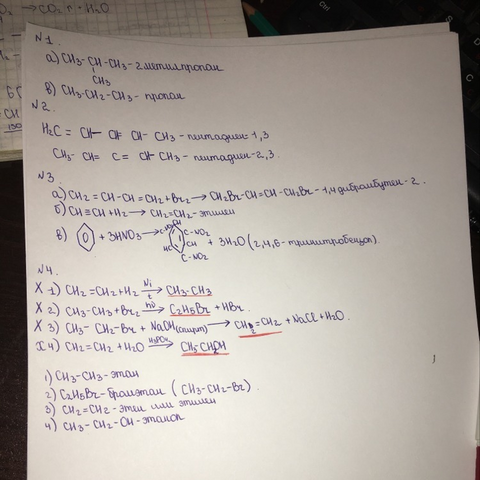 N1.
а) CH3-CH-CH3-2метилпропан
CH3
в) CH3-CH2-CH3- пропан
N2.
H2C= CH- CH= CH- CH3-пентадиен-1,3
CH3- CH= C= CH- CH3-пентадиен-2,3.
N3
а) CH2=CH-CH=CH2+Br2→CH2Br-CH=CH-CH2Br-1,4 дибромбутен-2.
б) CH≡CH+H2→ CH2=CH2-этилен
в) + 3HNO3→ C-NO2 CH HC C-NO2 + 3H2O (2,4,6-тринитробензол).
N4.
X 1) CH2=CH2+H2 Ni t → CH3-CH3
X 2) CH3-CH3+Br2 hν → C2H5Br + HBr.
X 3) CH3- CH2-Br + NaOH(спирт) → CH2=CH2 + NaCl+H2O.
4) CH2=CH2 + H2O H3PO4 →
1) CH3-CH3-этан
2) C2H5Br-бромэтан ( CH3-CH2-Br).
3) CH2=CH2-этен или этилен
4) CH3-CH2-OH-этанол